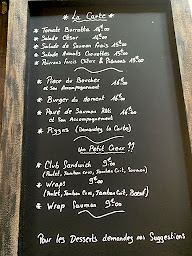 * La Carte *
* Tomate Burratta 14€00
* Salade César 15€00
* Salade de Saumon frais 15€00
* Salade Avocats Crevettes 15€00
* Poivrons farcis Chèvre & Poivrons 15€00
* Pièce du Boucher 16€00
et Son Accompagnement
* Burger du moment 16€00
* Pavé de Saumon Rôti 16€00
et Son Accompagnement
* Pizzas (Demandez la Carte)
Un Petit Creux !!
* Club Sandwich 9€00
(Poulet, Jambon Cru, Jambon Cuit, Saumon)
* Wraps 9€00
(Poulet, Jambon Cru, Jambon Cuit, Boeuf)
* Wrap Saumon 9€00
Pour les Desserts demandez nos Suggestions